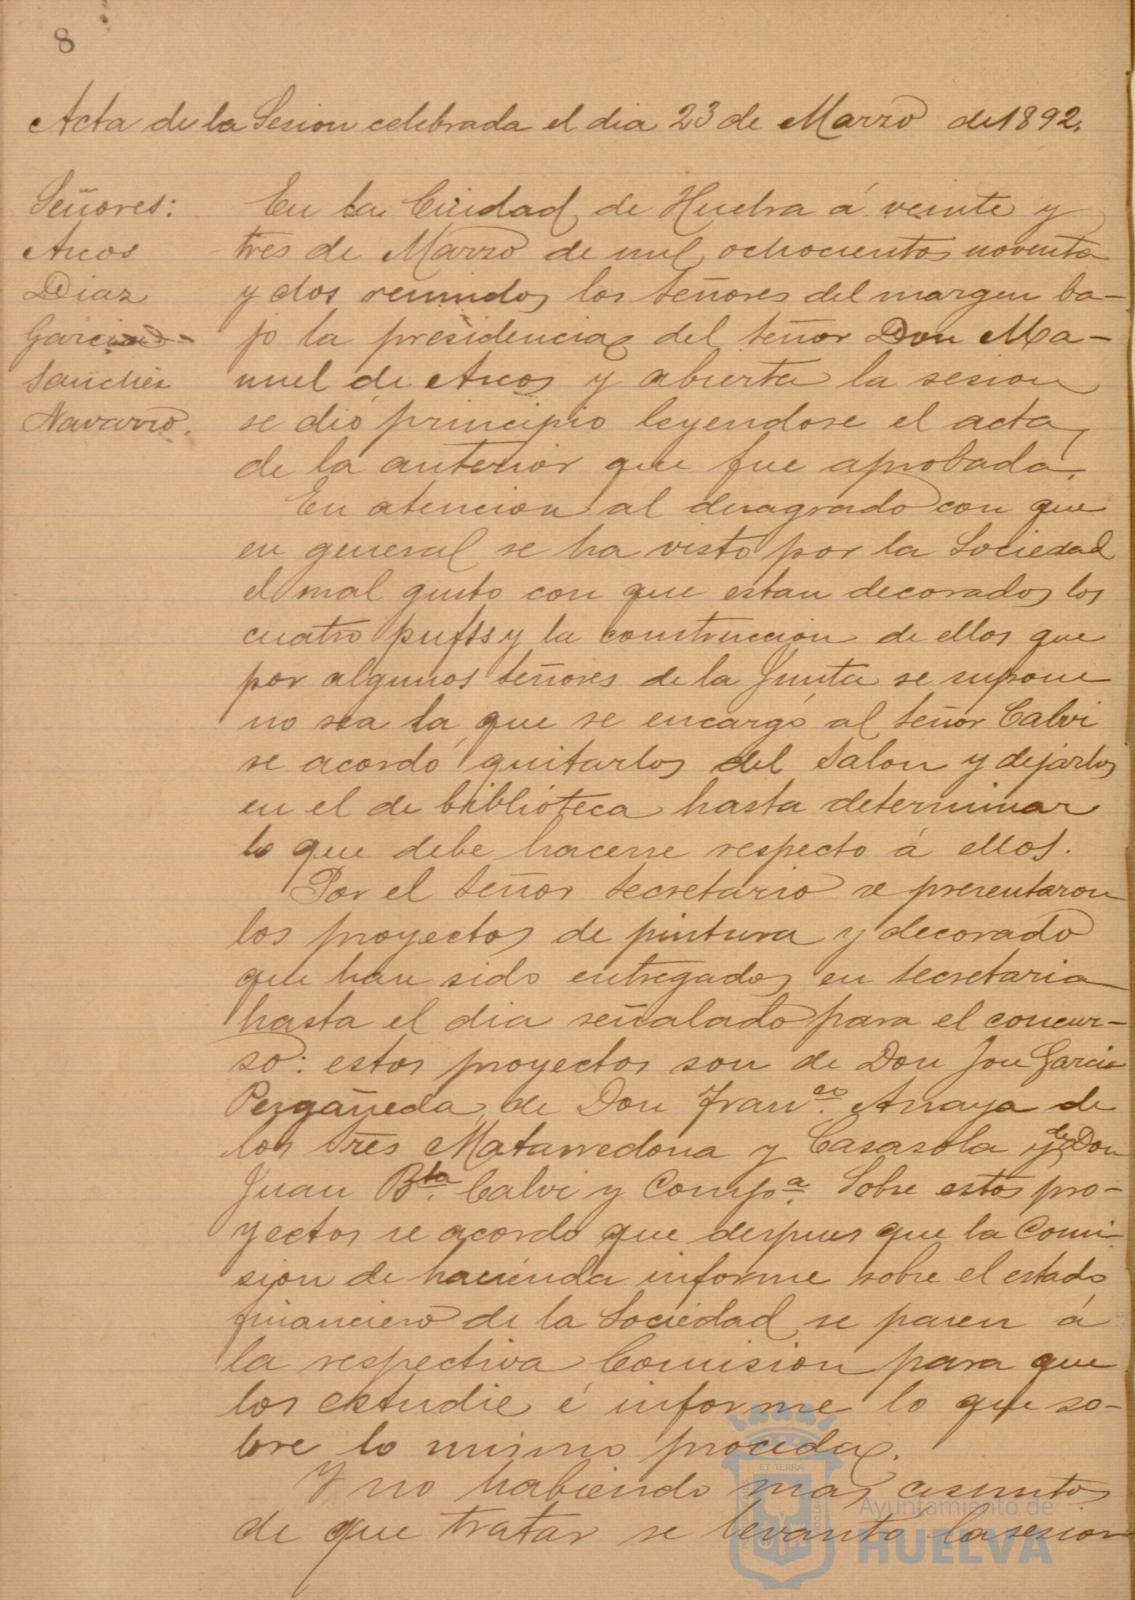 8
Acta de la Sesion celebrada el dia 23 de Marzo de 1892.
Señores:
Arcos
Diaz
Garcia
Sanchez
Navarro.
En la Ciudad de Huelva á veinte y
tres de Marzo de mil ochocientos noventa
y dos reunidos los señores del margen ba-
jo la presidencia del señor Don Ma-
nuel de Arcos y abierta la sesion
se dió principio leyendose el acta
de la anterior que fue aprobada.
En atencion al desagrado con que
en general se ha visto por la Sociedad
el mal gusto con que estan decorados los
cuatro puffs y la construccion de ellos que
por algunos señores de la Junta se supone
no sea la que se encargó al señor Calvi
se acordó quitarlos del Salon y dejarlos
en el de biblioteca hasta determinar
lo que debe hacerse respecto á ellos.
Por el señor Secretario se presentaron
los proyectos de pintura y decorado
que han sido entregados en Secretaria
hasta el dia señalado para el concur-
so: estos proyectos son de Don José Garcia
de Don Fran.co Anaya de
los tres Matarredona y Casasola y de Don
Juan B.ta Calvi y Comp.a Sobre estos pro-
yectos se acordo que despues que la Comi-
sion de hacienda informe sobre el estado
financiero de la Sociedad se pasen á
la respectiva Comision para que
los estudie é informe lo que so-
bre lo mismo proceda.
Y no habiendo mas asuntos
de que tratar se levantó la sesion
ET TERRAE
Ayuntamiento de
HUELVA